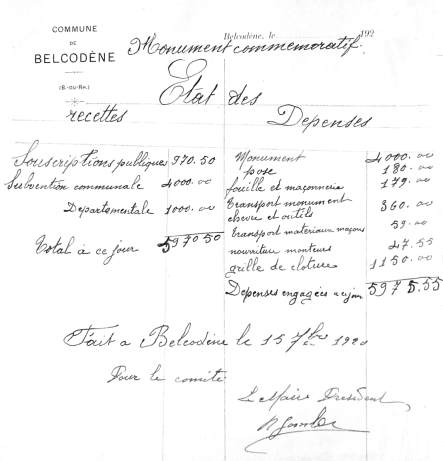 COMMUNE
DE
BELCODÈNE
(B.-DU-RH.)
Belcodène, le 192
Monument commemoratif.
Etat des
recettes
Depenses
Souscriptions publiques 970.50
Subvention communale 4000.00
Departementale 1000.00
Total à ce jour 5970.50
Monument 4000.00
pose 180.00
fouille et maçonnerie 179.00
transport monument
chevre et outils 360.00
transport materiaux maçons 59.00
nourriture monteurs 47.55
grille de cloture 1150.00
Depenses engagées a ce jour 5975.55
Fait a Belcodène le 15 7bre 1920
Pour le comité
Le Maire President